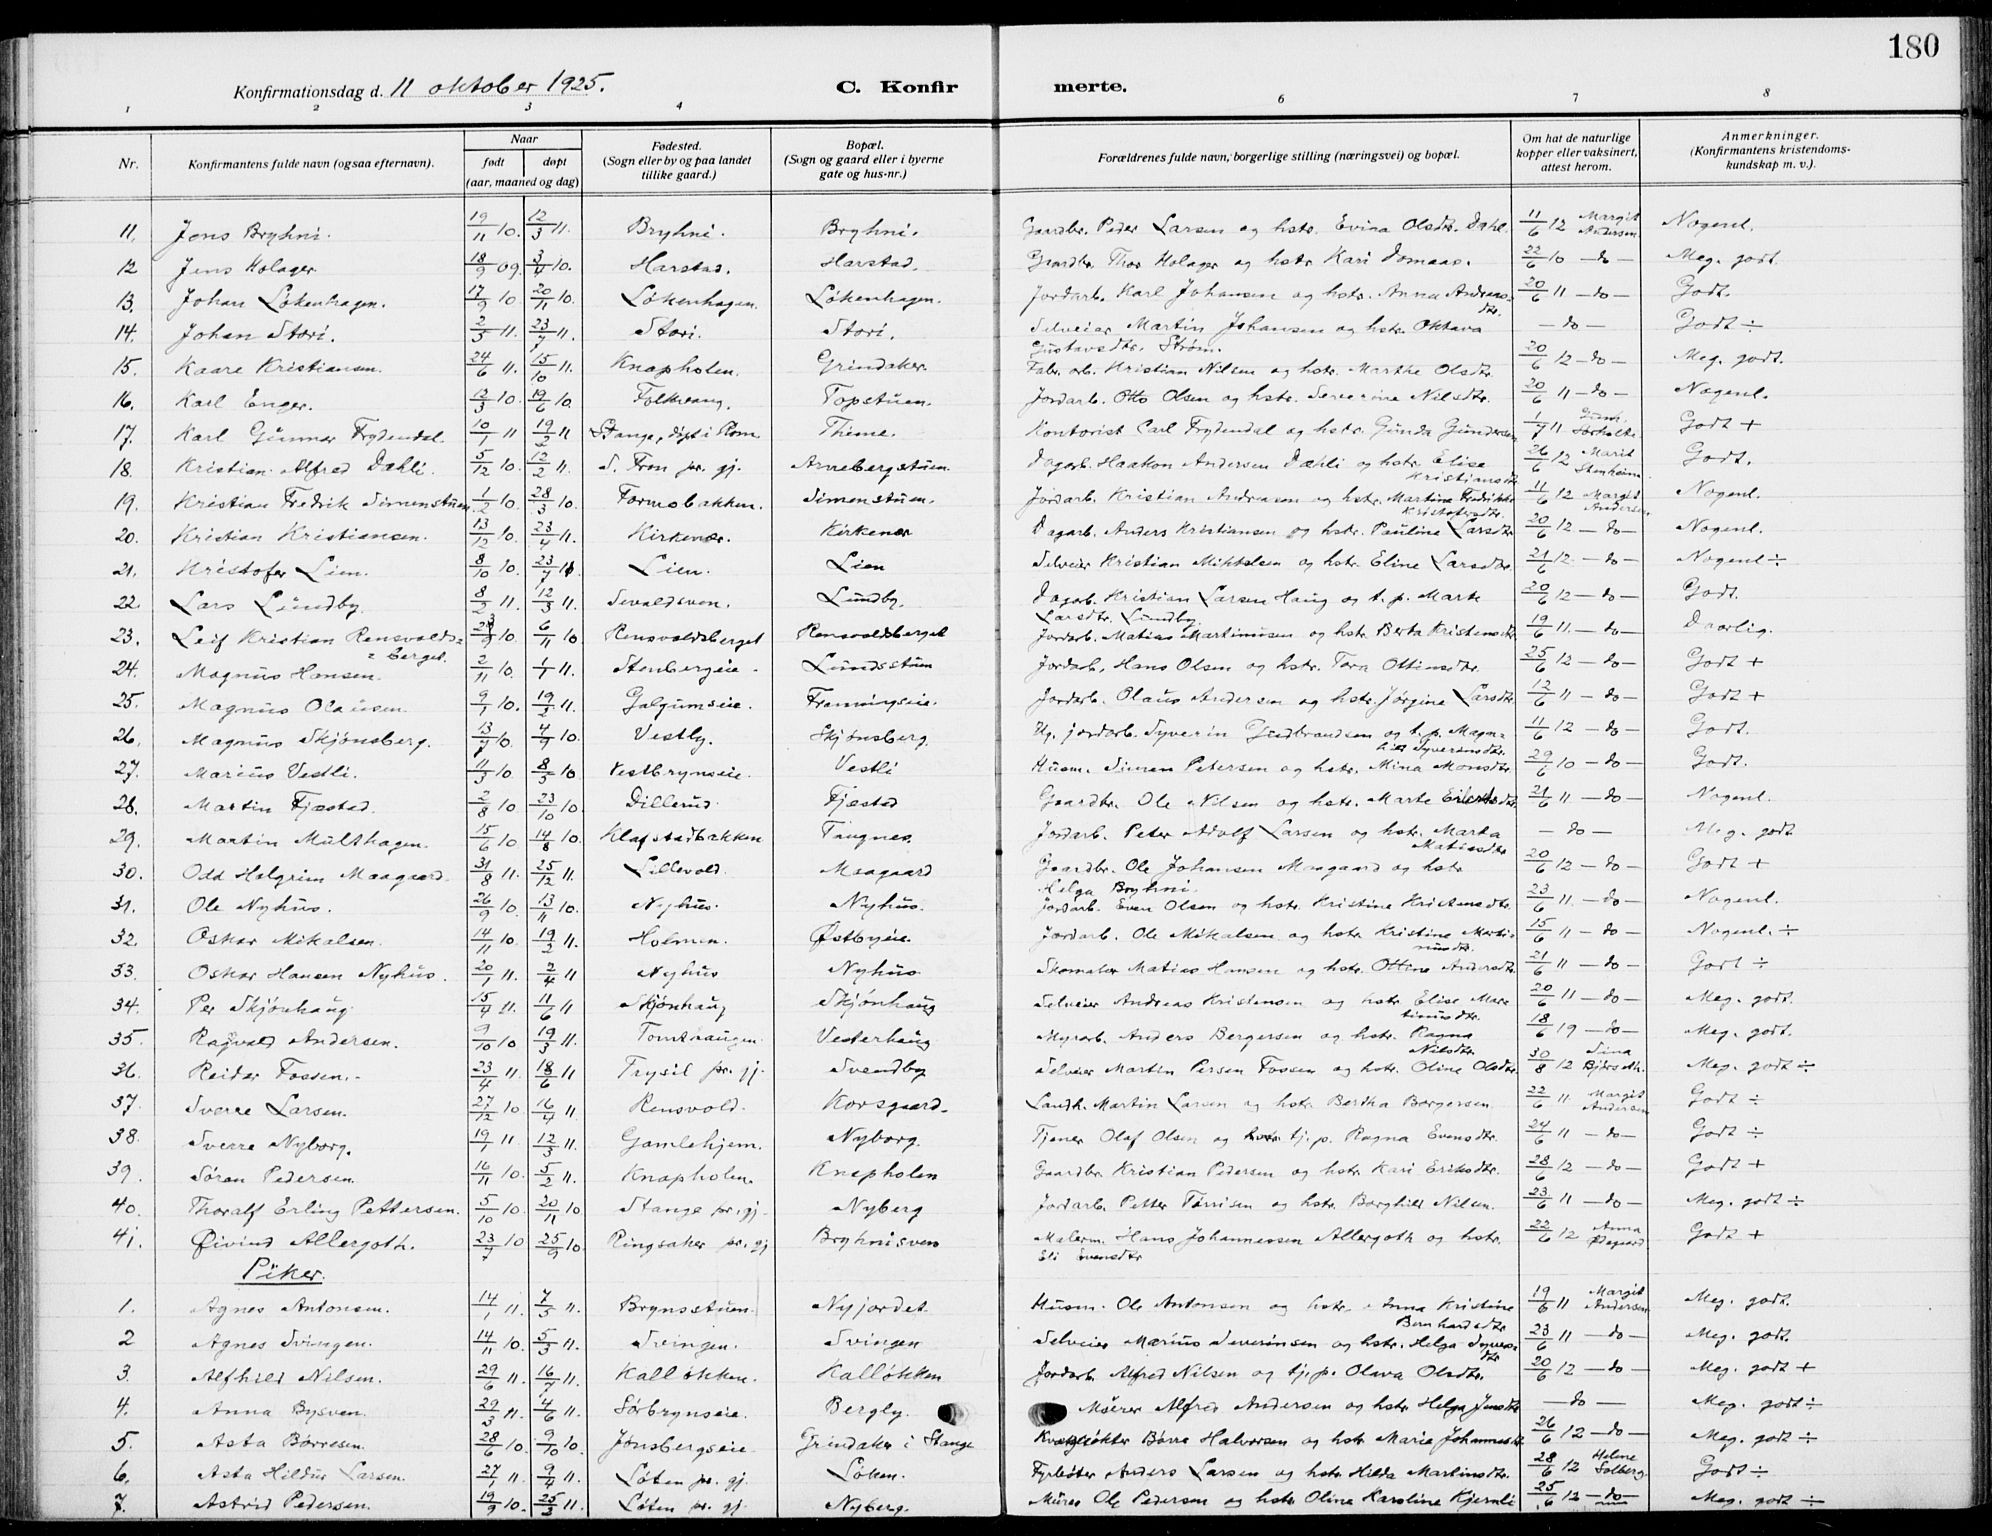 180
Konfirmationsdag d. 11 oktober 1925. C. Konfirmerte.
1 2 3 4 6 7 8
Nr. Konfirmantens fulde navn (ogsaa efternavn). Naar født døpt (aar, maaned og dag) Fødested. (Sogn eller by og paa landet tillike gaard.) Bopæl. (Sogn og gaard eller i byerne gate og hus-nr.) Forældrenes fulde navn, borgerlige stilling (næringsvei) og bopæl. Om hat de naturlige kopper eller vaksinert, attest herom. Anmerkninger. (Konfirmantens kristendoms-kundskap m. v.).
11. Jens Bryhni. 19/11 10. 12/3 11. Bryhni. Bryhni. Gaardbr. Peder Larsen og hstr. Evina Olsdtr. Dahl. 11/6 12 Margit Andersen Nogenl.
12 Jens Holager 18/9 09. 3/4 10. Harstad. Harstad. Gaardbr. Thor Holager og hstr. Kari Domaas. 22/6 10 - do - Meg. godt.
13. Johan Løkenhagen. 17/9 10. 20/11 10. Løkenhagen. Løkenhagen. Jordarb. Karl Johansen og hstr. Anna Andreasdtr. 20/6 11 - do - Godt.
14. Johan Stori. 2/5 11. 23/7 11. Stori. Stori. Selveier Martin Johansen og hstr. Oktava Gustavsdtr. Strøm. - do - Godt ÷
15. Kaare Kristiansen. 24/6 11. 15/10 11. Knapholen. Grindaker. Fabr. arb. Kristian Nilsen og hstr. Marthe Olsdtr. 20/6 12 - do - Meg. godt.
16. Karl Enger. 12/3 10. 19/6 10. Folkvang. Topstuen. Jordarb. Otto Olsen og hstr. Severine Nilsdtr. 20/6 11 - do - Nogenl.
17. Karl Gunnar Frydendal. 10/1 11 19/2 11 Stange, døpt i Rom. Theme. Kontorist Carl Frydendal og hstr. Gunda Gundersen 1/7 11 Godt +
18. Kristian Alfred Dahli. 5/12 10. 12/2 11. S. Fron pr. gj. Annebergstuen. Dagarb. Haakon Andersen Dahli og hstr. Elise Kristiansdtr. 26/6 12 Marit Stenheim Godt.
19. Kristian Fredrik Simenstuen. 1/2 10. 28/3 10. Formobakken. Simenstuen. Jordarb. Kristian Andreasen og hstr. Martina Fredrikke Kristofersdtr. 11/6 12 Margit Andersen Nogenl.
20. Kristian Kristiansen. 13/12 10. 23/4 11. Kirkenær. Kirkenær Dagarb. Anders Kristiansen og hstr. Pauline Larsdtr 20/6 12 - do - Nogenl.
21. Kristofer Lien. 8/10 10. 23/7 11. Lien. Lien Selveier Kristian Mikkelsen og hstr. Eline Larsdtr. 21/6 12 - do - Nogenl ÷
22. Lars Lundby. 8/2 11. 12/3 11. Sevaldsven. Lundby. Dagarb. Kristian Larsen Haug og t. p. Marte Larsdtr. Lundby. 20/6 12 - do - Godt.
23. Leif Kristian Rensvoldsberget. 10. 6/11 10 Rensvoldsberget Rensvoldberget Jordarb. Matias Martinusen og hstr. Berta Kristensdtr. 19/6 11. - do - Daarlig.
24. Magnus Hansen. 2/11 10. 1/1 11. Stenbergeie. Lundsstuen Jordarb. Hans Olsen og hstr. Tora Ottinsdtr. 25/6 12 - do - Godt +
25. Magnus Olausen 9/1 10. 19/2 11. Galgumseie. Framningseie. Jordarb. Olaus Andersen og hstr. Jørgine Larsdtr. 12/6 11 - do - Godt +
26. Magnus Skjønsberg. 13/7 10. 4/9 10. Vestby. Skjønsberg. Ug. jordarb. Syverin Gudbrandsen og t. p. Magnhild Syversensdtr. 11/6 12 - do - Godt.
27. Marius Vestli. 11/3 10. 8/5 10 Vestbrynseie. Vestli Husm. Simen Petersen og hstr. Mina Monsdtr. 29/6 10 - do - Godt.
28. Martin Fjæstad. 2/8 10 23/10 10. Dillerud. Fjæstad Gaardbr. Ole Nilsen og hstr. Marte Eilertsdtr. 21/6 11. - do - Nogenl.
29. Martin Multhagen. 15/6 10 14/8 10. Klafstadbakken Taugnes Jordarb. Peter Adolf Larsen og hstr. Marta Matiasdtr - do - Meg. godt
30. Odd Halgrim Maagaard. 31/8 11. 25/12 11. Lillevold. Maagaard Gaardbr. Ole Johansen Maagaard og hstr Helga Bryhni. 20/6 12 - do - Godt +
31. Ole Nyhus. 26/9 10. 13/11 10. Nyhus. Nyhus. Jordarb. Even Olsen og hstr. Kristine Kristensdtr. 23/6 11. - do - Nogenl.
32. Oskar Mikalsen. 14/11 10. 19/2 11. Holmen. Østbyeie. Jordarb. Ole Mikalsen og hstr. Kristine Martinusdtr. 15/6 11 - do - Nogenl. ÷
33. Oskar Hansen Nyhus. 20/1 11. 2/4 11 Nyhus Nyhus Skomaker Matias Hansen og hstr. Ottine Andersdtr. 21/6 11 - do - Godt ÷
34. Per Skjønhaug 15/4 11. 11/6 11 Skjønhaug Skjønhaug Selveier Andreas Kristensen og hstr. Elise Martinusdtr. 20/6 11 - do - Meg. godt.
35. Ragvald Andersen. 9/10 10 19/3 11. Tomthaugen Vesterhaug Myrarb. Anders Bergersen og hstr. Ragna Nilsdtr. 18/6 19 - do - Meg. godt.
36. Reidar Fossen. 23/4 11. 18/6 11 Trysil pr. gj. Svendby Selveier Martin Persen Fossen og hstr. Oline Olsdtr. 30/8 12 Sina Bjørseth. Meg. godt ÷
37. Sverre Larsen. 27/12 10. 16/4 11. Rensvold. Korsgaard. Landh. Martin Larsen og hstr. Bertha Borgersen 22/6 11. Margit Andersen Godt ÷
38. Sverre Nyborg. 19/1 11. 12/3 11. Gamlehjem. Nyborg. Tjener Olaf Olsen og tj. p. Ragna Evensdtr. 24/6 11 - do - Godt ÷
39. Søren Pedersen. 16/11 10. 5/2 11. Knapholen. Knapholen Gaardbr. Kristian Pedersen og hstr. Kari Eriksdtr. 28/6 12 - do - Godt +
40. Thoralf Erling Pettersen. 5/10 10. 20/11 10 Stange pr. gj. Nyberg Jordarb. Petter Tørrisen og hstr. Borghild Nilsen. 23/6 11 - do - Meg. godt ÷
41. Øivind Allergoth. 23/7 10 25/9 10 Ringsaker pr. gj. Bryhnisven Malerm. Hans Johannessen Allergoth og hstr. Eli Evensdtr 22/6 12 Anna Ødegaard Godt +
Piker.
1. Agnes Antonsen. 14/1 11. 7/5 11. Brynsstuen. Nyjordet Husm. Ole Antonsen og hstr. Anna Kristine Bernhardsdtr 19/6 11 Margit Andersen Meg. godt.
2 Agnes Svingen. 14/11 10. 5/3 11. Svingen. Svingen Selveier Marius Severinsen og hstr. Helga Syversdtr 23/6 11 - do - Meg. godt.
3. Alfhild Nilsen. 29/6 11. 16/7 11. Kalløkken. Kalløkken Jordarb. Alfred Nilsen og tj. p. Olava Olsdtr. 20/6 12 - do - Meg. godt +
4. Anna Bysven. 29/3 11. 4/6 11. Sørbrynseie. Bergly. Murer Alfred Andersen og hstr. Helga Jensdtr - do - Meg. godt ÷
5. Asta Børresen. 28/6 10. 9/10 10. Jønsbergseie. Grindaker i Stange Kvægrøkter Børre Halvorsen og hstr. Marie Johannesdtr 26/6 12 - do - Meg. godt ÷
6. Asta Hildur Larsen. 27/1 11. 9/4 11. Løten pr. gj. Løken. Fyrbøter Anders Larsen og hstr. Hilda Martinsdtr. 28/6 12 Helene Solberg. Godt ÷
7. Astrid Pedersen. 19/9 10. 25/3 11. Løten pr. gj. Nyberg. Murer Ole Pedersen og hstr. Oline Karoline Kjernli 25/6 12 - do - Meg. godt ÷